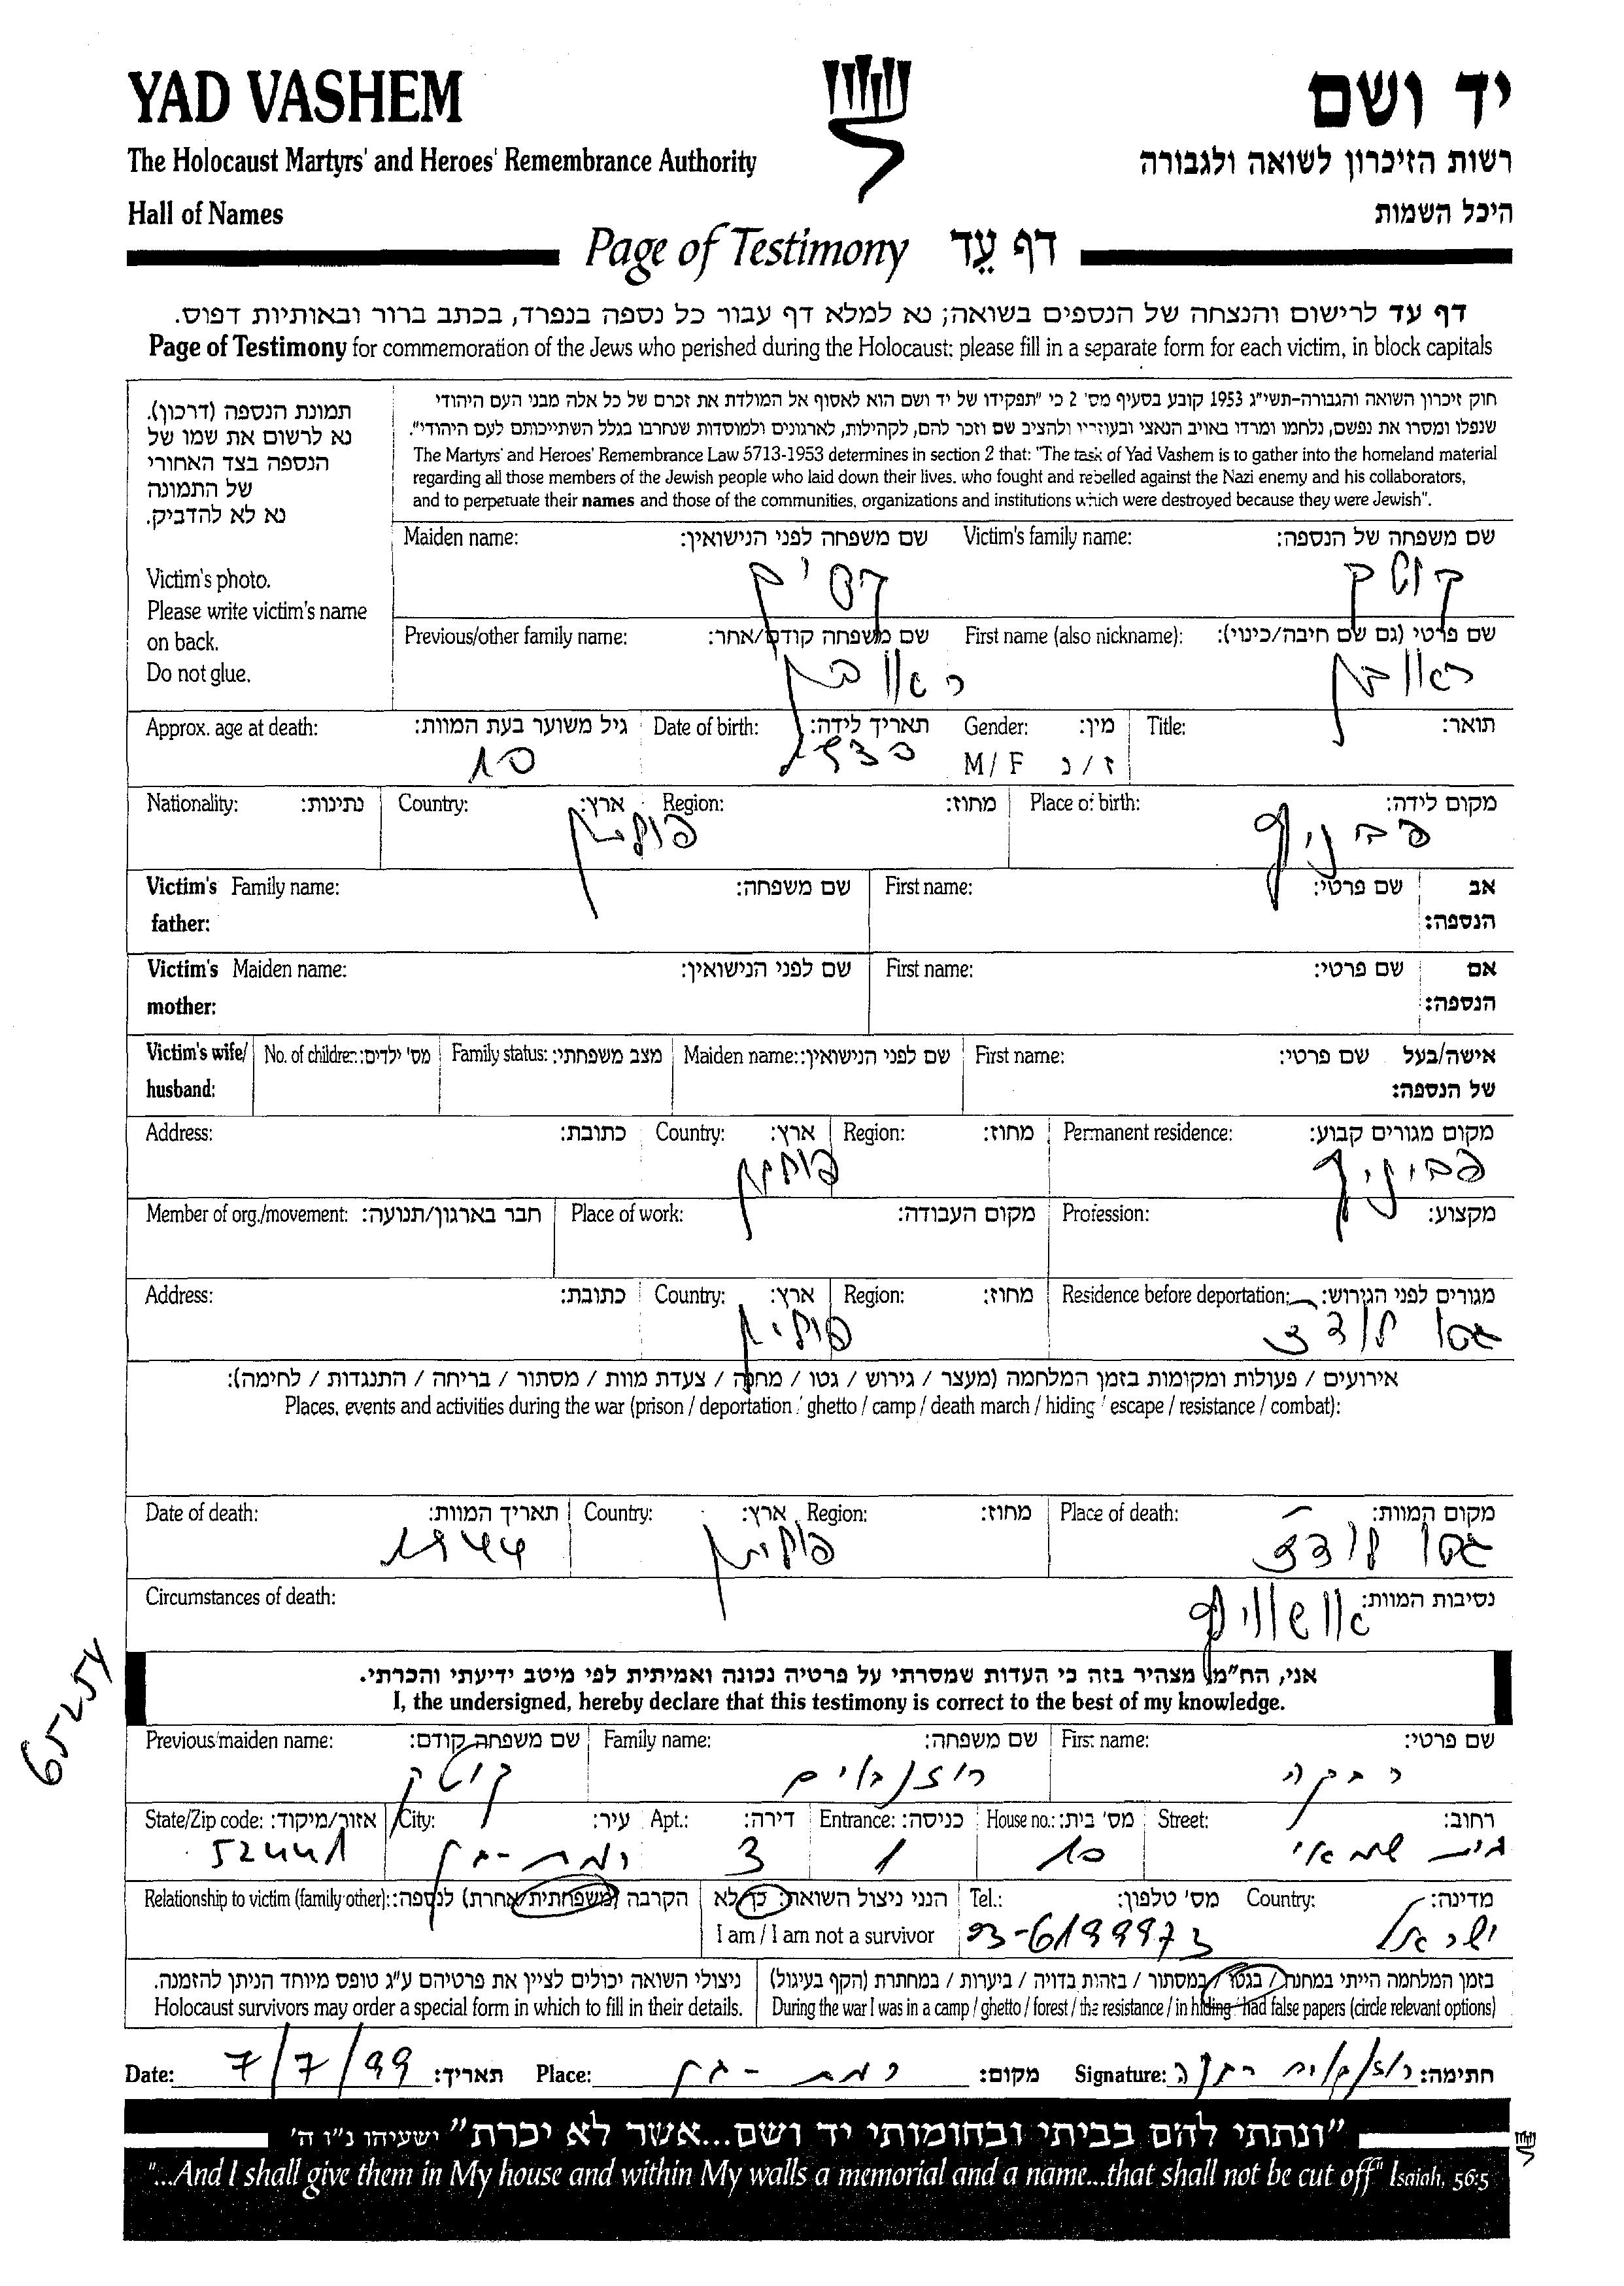 YAD VASHEM
יד ושם
The Holocaust Martyrs' and Heroes' Remembrance Authority
רשות הזיכרון לשואה ולגבורה
Hall of Names
היכל השמות
Page of Testimony דף עֵד
דף עד לרישום והנצחה של הנספים בשואה; נא למלא דף עבור כל נספה בנפרד, בכתב ברור ובאותיות דפוס.
Page of Testimony for commemoration of the Jews who perished during the Holocaust; please fill in a separate form for each victim, in block capitals
תמונת הנספה (דרכון).
נא לרשום את שמו של
הנספה בצד האחורי
של התמונה
נא לא להדביק.
Victim's photo.
Please write victim's name
on back.
Do not glue.
חוק זיכרון השואה והגבורה-תשי"ג 1953 קובע בסעיף מס' 2 כי "תפקידו של יד ושם הוא לאסוף אל המולדת את זכרם של כל אלה מבני העם היהודי
שנפלו ומסרו את נפשם, נלחמו ומרדו באויב הנאצי ובעוזריו ולהציב שם וזכר להם, לקהילות, לארגונים ולמוסדות שנחרבו בגלל השתייכותם לעם היהודי".
The Martyrs' and Heroes' Remembrance Law 5713-1953 determines in section 2 that: "The task of Yad Vashem is to gather into the homeland material
regarding all those members of the Jewish people who laid down their lives, who fought and rebelled against the Nazi enemy and his collaborators,
and to perpetuate their names and those of the communities, organizations and institutions which were destroyed because they were Jewish".
שם משפחה של הנספה: Victim's family name: שם משפחה לפני הנישואין: Maiden name:
קוטק
שם פרטי (גם שם חיבה/כינוי): First name (also nickname): שם משפחה קודם/אחר: Previous/other family name:
ראובן ראובן
תואר: Title: מין: Gender: תאריך לידה: Date of birth: גיל משוער בעת המוות: Approx. age at death:
ז/נ M/F 10
מקום לידה: Place of birth: מחוז: Region: ארץ: Country: נתינות: Nationality:
פביניץ פולין
אב שם פרטי: First name: שם משפחה: Victim's Family name:
הנספה: father:
אם שם פרטי: First name: שם לפני הנישואין: Victim's Maiden name:
הנספה: mother:
אישה/בעל שם פרטי: First name: שם לפני הנישואין: Maiden name: מצב משפחתי: Family status: מס' ילדים: No. of children: Victim's wife/
של הנספה: husband:
מקום מגורים קבוע: Permanent residence: מחוז: Region: ארץ: Country: כתובת: Address:
פביניץ פולין
מקצוע: Profession: מקום העבודה: Place of work: חבר בארגון/תנועה: Member of org./movement:
מגורים לפני הגירוש: Residence before deportation: מחוז: Region: ארץ: Country: כתובת: Address:
גטו לודז' פולין
אירועים / פעולות ומקומות בזמן המלחמה (מעצר / גירוש / גטו / מחנה / צעדת מוות / מסתור / בריחה / התנגדות / לחימה):
Places, events and activities during the war (prison / deportation / ghetto / camp / death march / hiding / escape / resistance / combat):
מקום המוות: Place of death: מחוז: Region: ארץ: Country: תאריך המוות: Date of death:
גטו לודז' פולין 1944
נסיבות המוות: Circumstances of death:
אושוויץ
65254
אני, הח"מ, מצהיר בזה כי העדות שמסרתי על פרטיה נכונה ואמיתית לפי מיטב ידיעתי והכרתי.
I, the undersigned, hereby declare that this testimony is correct to the best of my knowledge.
שם פרטי: First name: שם משפחה: Family name: שם משפחה קודם: Previous/maiden name:
רבקה רוזנבוים קוטק
רחוב: Street: מס' בית: House no.: כניסה: Entrance: דירה: Apt.: עיר: City: אזור/מיקוד: State/Zip code:
בית שמאי 10 1 3 רמת-גן 52441
מדינה: Country: מס' טלפון: Tel.: הנני ניצול השואה: כן/לא הקרבה (משפחתית/אחרת) לנספה: Relationship to victim (family/other):
ישראל 03-6199973 I am / I am not a survivor
בזמן המלחמה הייתי במחנה / בגטו / במסתור / בזהות בדויה / ביערות / במחתרת (הקף בעיגול)
During the war I was in a camp / ghetto / forest / the resistance / in hiding / had false papers (circle relevant options)
ניצולי השואה יכולים לציין את פרטיהם ע"ג טופס מיוחד הניתן להזמנה.
Holocaust survivors may order a special form in which to fill in their details.
חתימה: רוזנבוים רבקה Signature: מקום: רמת-גן Place: תאריך: 7/7/99 Date:
"ונתתי להם בביתי ובחומותי יד ושם...אשר לא יכרת" ישעיהו נ"ו ה'
"...And I shall give them in My house and within My walls a memorial and a name...that shall not be cut off" Isaiah, 56:5